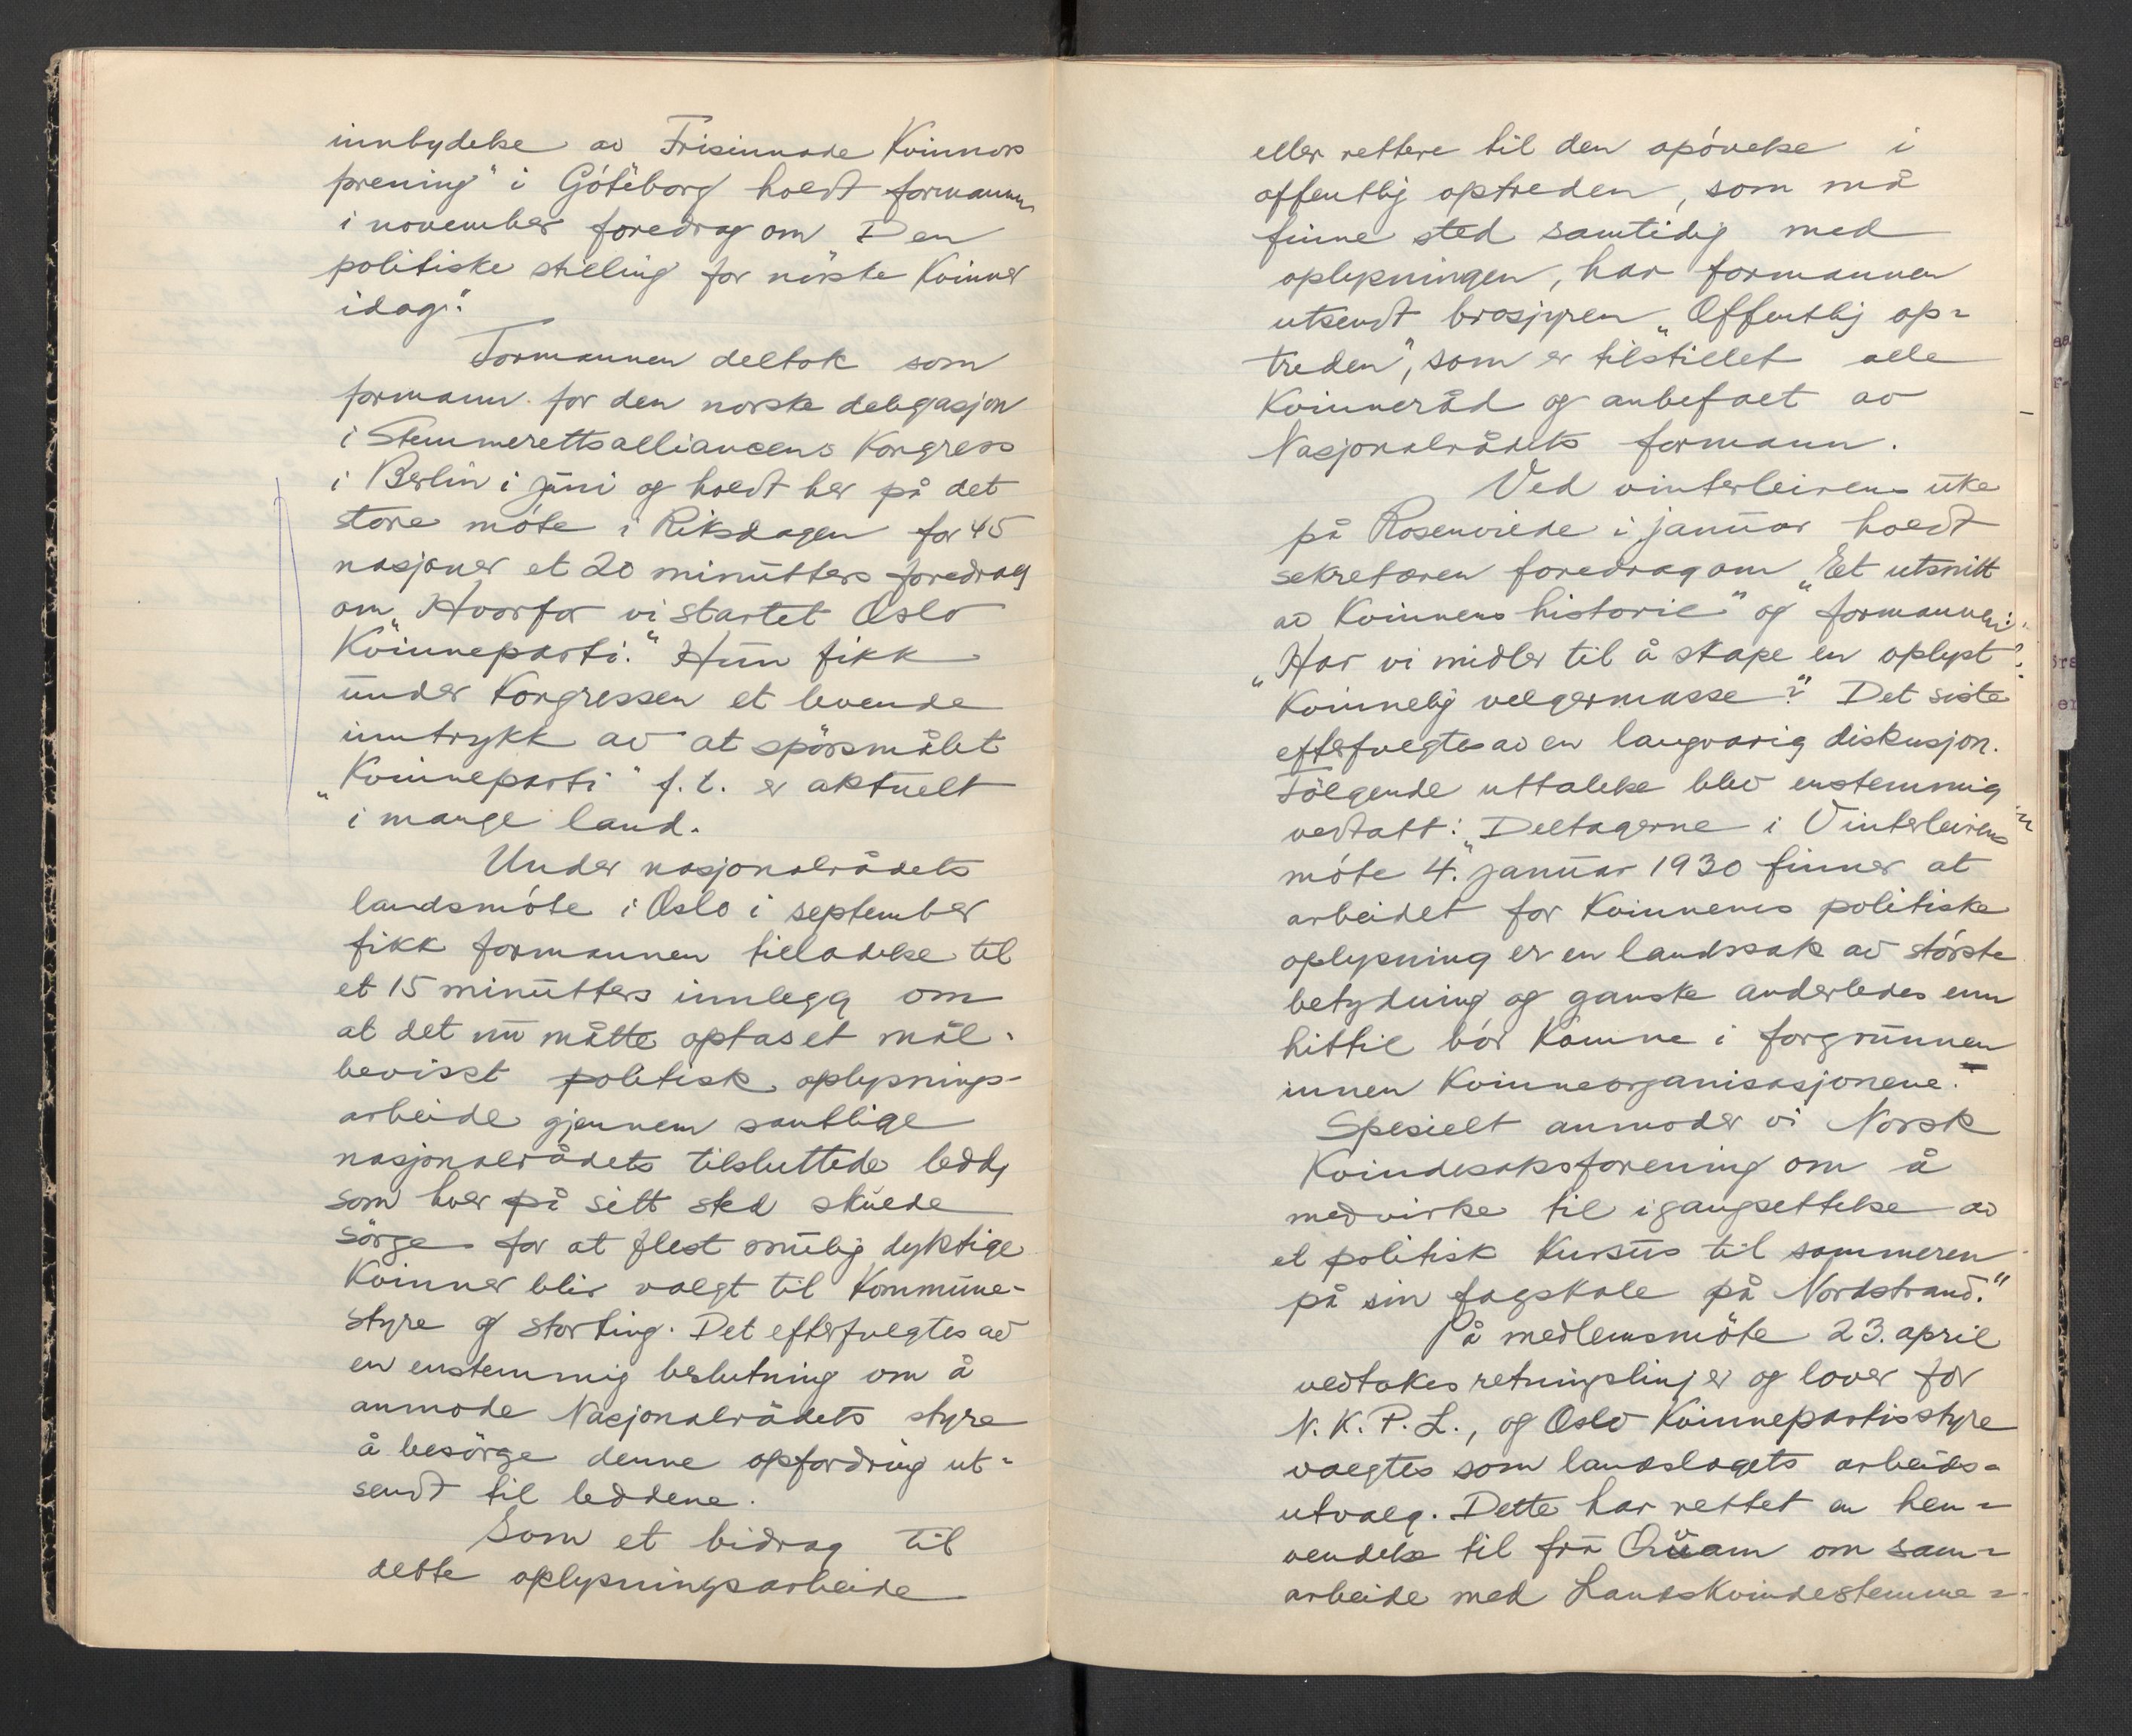 innbydelse av Frisinnade Kvinnors
forening" i Göteborg holdt formannen
i november foredrag om "Den
politiske stilling for norske kvinner
idag."
Formannen deltok som
formann for den norske delegasjon
i Stemmerettsalliancens Kongress
i Berlin i juni og holdt her på det
store møte i Riksdagen for 45
nasjoner et 20 minutters foredrag
om „Hvorfor vi startet Oslo
Kvinneparti." Hun fikk
under Kongressen et levende
inntrykk av at spørsmålet
„Kvinneparti" f. t. er aktuelt
i mange land.
Under nasjonalrådets
landsmøte i Oslo i september
fikk formannen tilladelse til
et 15 minutters innlegg om
at det nu måtte optas et mål-
bevisst politisk oplysnings-
arbeide gjennem samtlige
nasjonalrådets tilsluttede ledd,
som hver på sitt sted skulde
sørge for at flest mulig dyktige
Kvinner blir valgt til Kommune-
styre og storting. Det efterfulgtes av
en enstemmig beslutning om å
anmode Nasjonalrådets styre
å besørge denne opfordring ut-
sendt til leddene.
Som et bidrag til
dette oplysningsarbeide
eller rettere til den opøvelse i
offentlig optreden, som må
finne sted samtidig med
oplysningen, har formannen
utsendt brosjyren „Offentlig op-
treden", som er tilstillet alle
Kvinneråd og anbefalt av
Nasjonalrådets formann.
Ved vinterleirens uke
på Rosenvilde i januar holdt
sekretæren foredrag om „Et utsnitt
av Kvinnens historie" og formannen:
„Har vi midler til å skape en oplyst
Kvinnelig velgermasse?" Det siste
efterfulgtes av en langvarig diskusjon.
Følgende uttalelse blev enstemmig
vedtatt: „Deltagerne i Vinterleirens
møte 4. januar 1930 finner at
arbeidet for Kvinnenes politiske
oplysning er en landssak av største
betydning og ganske anderledes enn
hittil bør komme i forgrunnen
innen Kvinneorganisasjonene.
Spesielt anmoder vi Norsk
Kvindesaksforening om å
medvirke til igangsettelse av
et politisk Kursus til sommeren
på sin fagskole på Nordstrand."
På medlemsmøte 23. april
vedtokes retningslinjer og lover for
N. K. P. L., og Oslo Kvinnepartis styre
valgtes som landslagets arbeids-
utvalg. Dette har rettet en hen-
vendelse til fru Qvam om sam-
arbeide med Landskvindestemme-